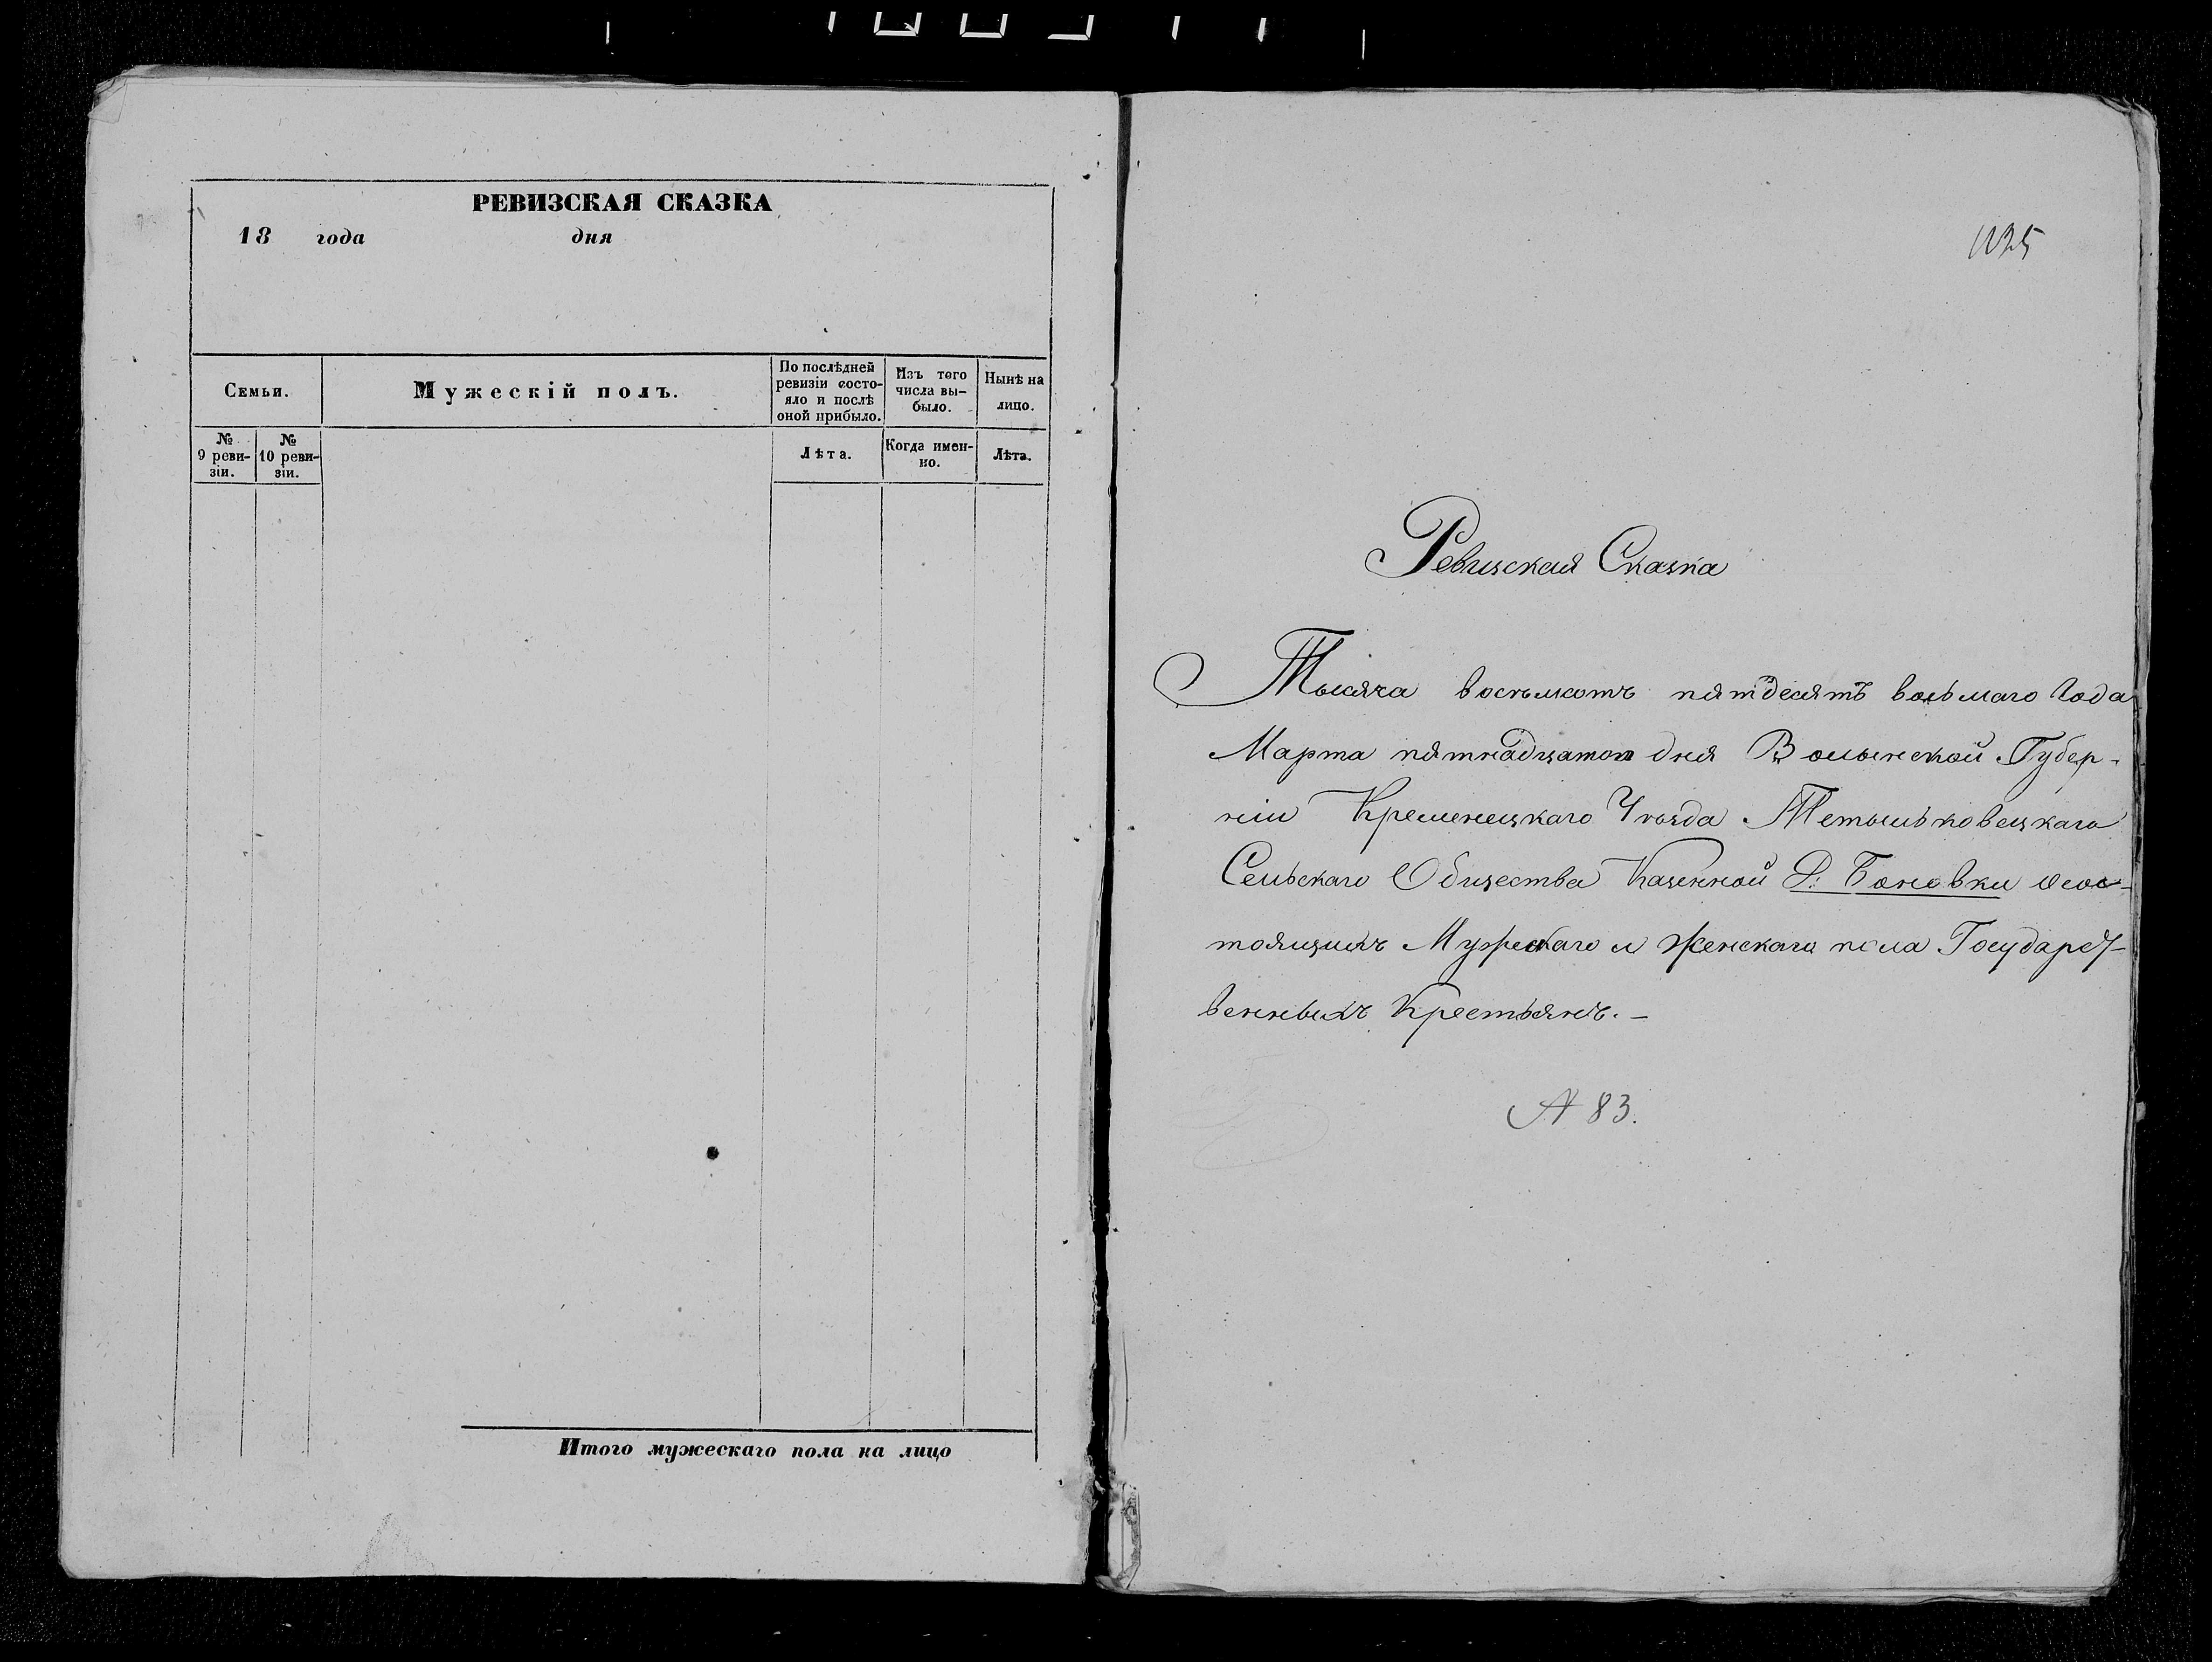 РЕВИЗСКАЯ СКАЗКА
18 года дня
Семьи.
Мужескій полъ.
По послѣдней
ревизіи состо-
яло и послѣ
оной прибыло.
Изъ того
числа вы-
было.
Нынѣ на
лицо.
№
9 реви-
зіи.
№
10 реви-
зіи.
Лѣта.
Когда имен-
но.
Лѣта.
Итого мужескаго пола на лицо
Ревизская Сказка
Тысяча восемьсотъ пятдесятъ восьмаго Года
Марта пятнадцатого дня Волынской Губер-
ніи Кременецкаго Уѣзда Тетыльковецкаго
Сельскаго Общества Казенной Д: Боновки о сос-
тоящихъ Мужескаго и Женскаго пола Государст-
венныхъ Крестьянъ. —
№ 83.